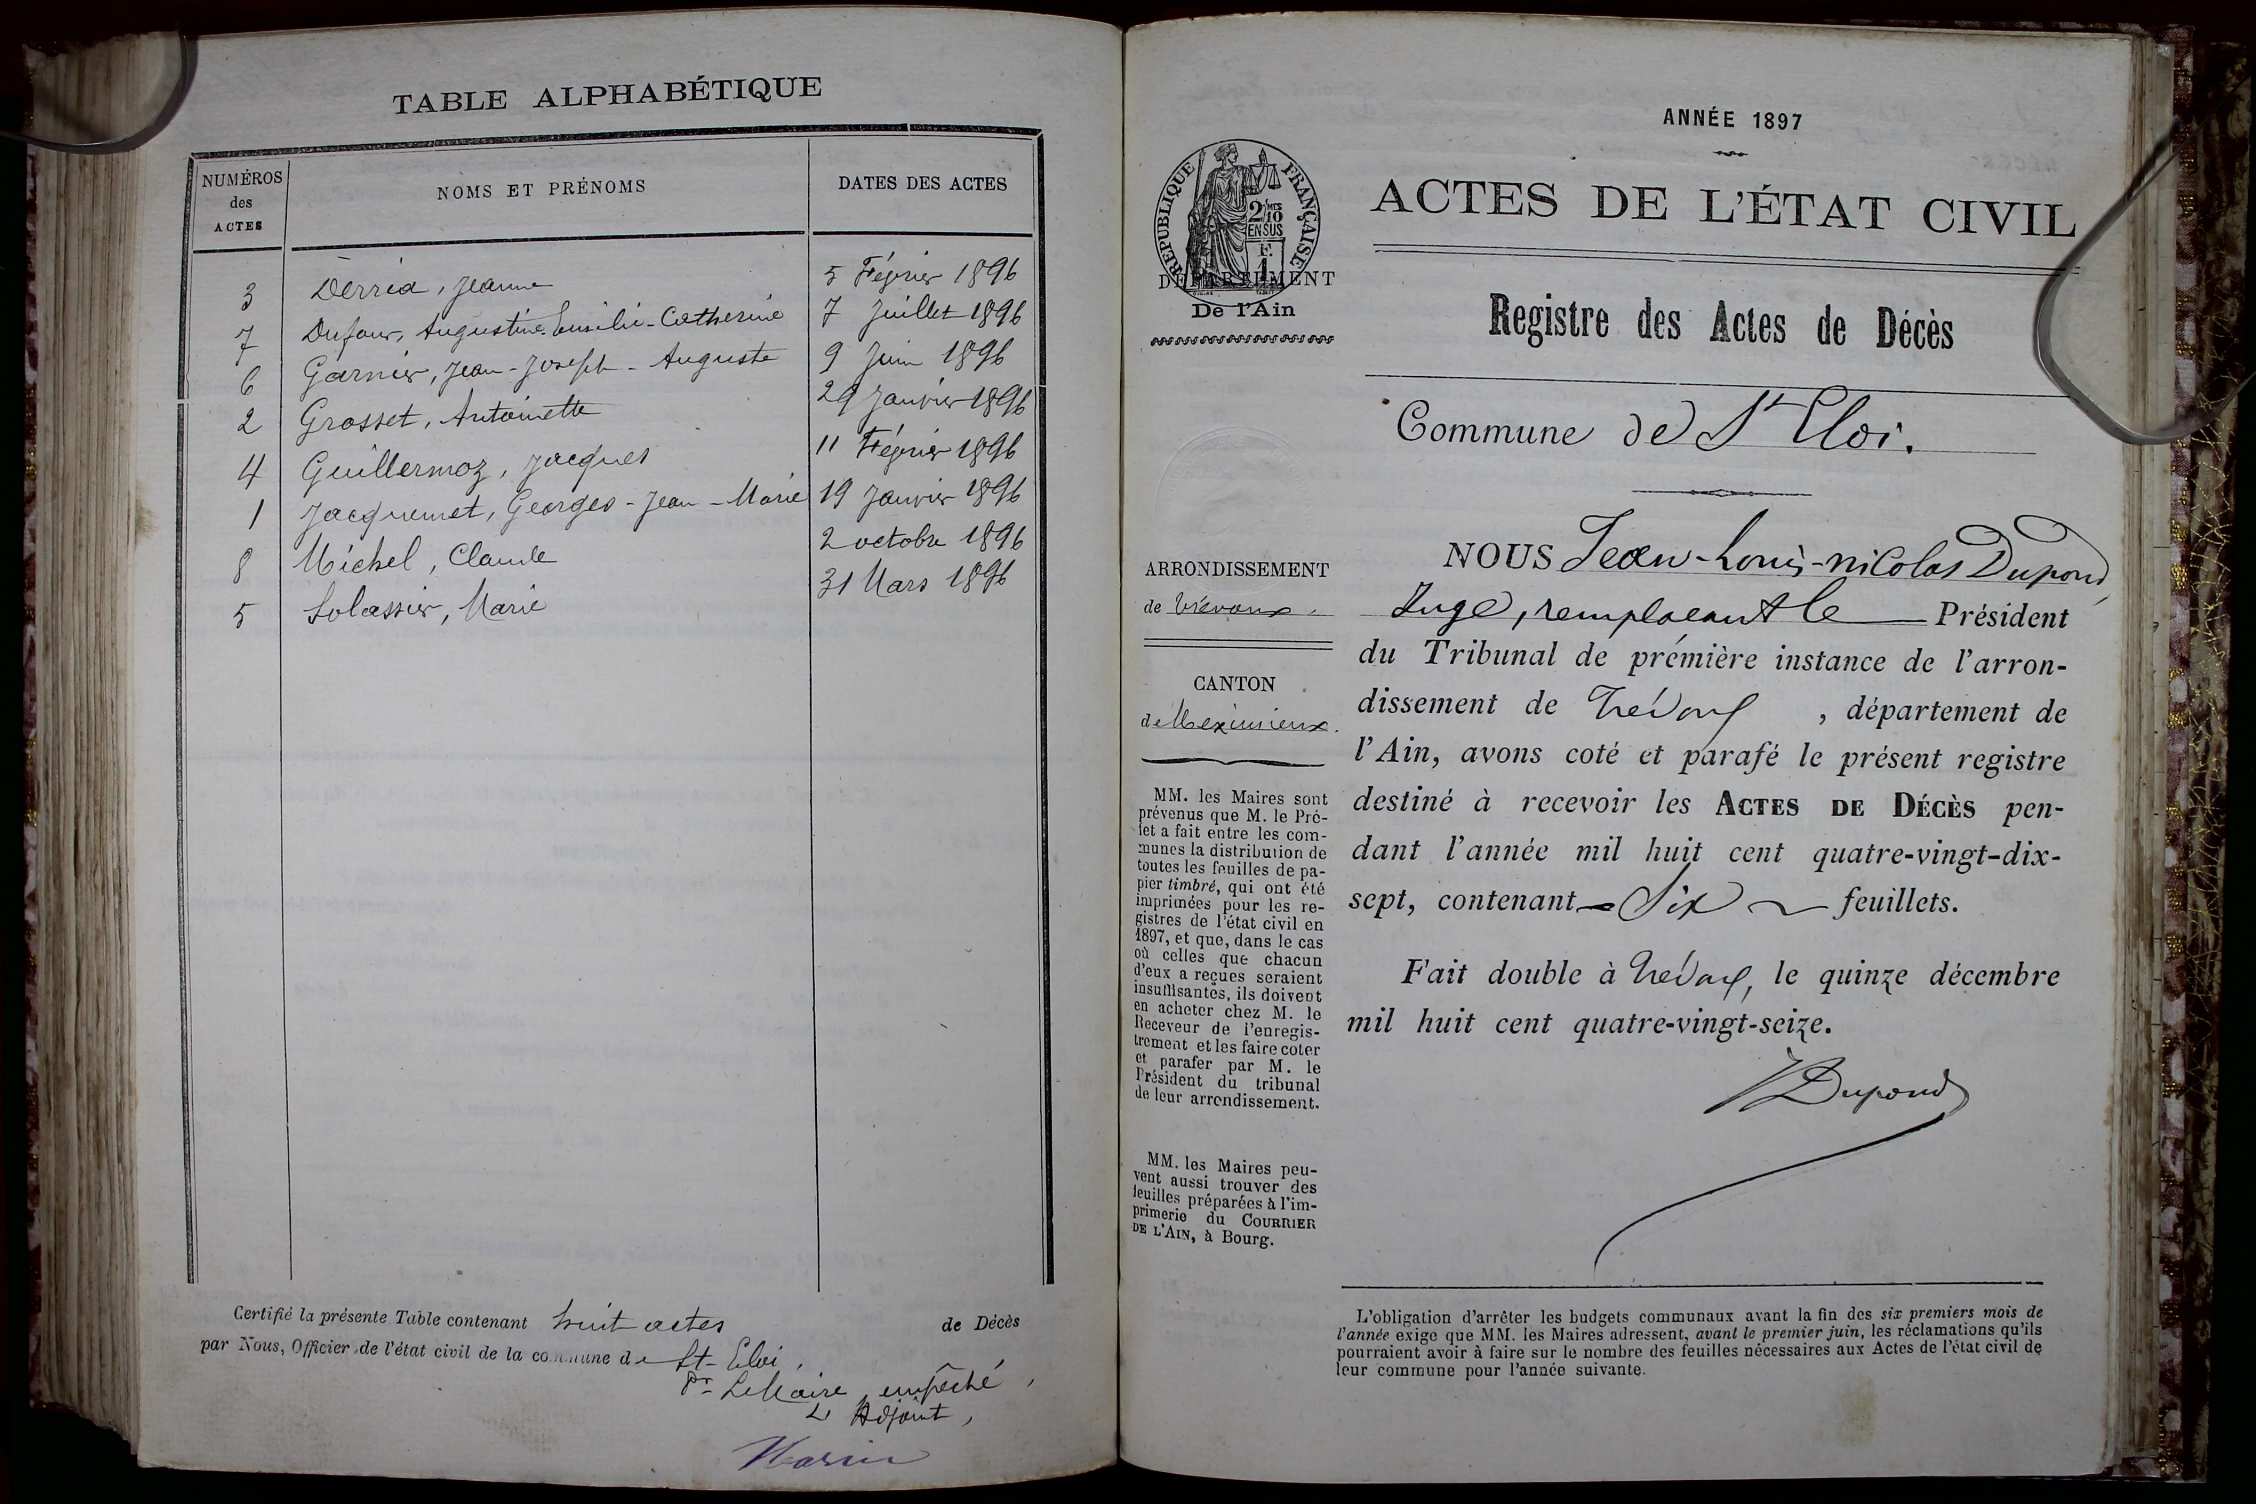 TABLE ALPHABÉTIQUE
NUMÉROS des ACTES | NOMS ET PRÉNOMS | DATES DES ACTES
3 Derria, Jeanne 5 Février 1896
7 Dufour, Augustine-Emilie-Catherine 7 Juillet 1896
6 Garnier, Jean-Joseph-Auguste 9 Juin 1896
2 Grosset, Antoinette 29 Janvier 1896
4 Guillermoz, Jacques 11 Février 1896
1 Jacquemet, Georges-Jean-Marie 19 Janvier 1896
8 Michel, Claude 2 octobre 1896
5 Solassier, Marie 31 Mars 1896
Certifié la présente Table contenant huit actes de Décès
par Nous, Officier de l'état civil de la commune de St-Eloi,
Pr Le Maire empêché,
L'Adjoint,
ANNÉE 1897
RÉPUBLIQUE FRANÇAISE
2/10mes
EN SUS
F.
1
ACTES DE L'ÉTAT CIVIL
DÉPARTEMENT
De l'Ain
Registre des Actes de Décès
Commune de St Eloi.
ARRONDISSEMENT
de Trévoux.
CANTON
de Meximieux.
MM. les Maires sont
prévenus que M. le Pré-
fet a fait entre les com-
munes la distribution de
toutes les feuilles de pa-
pier timbré, qui ont été
imprimées pour les re-
gistres de l'état civil en
1897, et que, dans le cas
où celles que chacun
d'eux a reçues seraient
insuffisantes, ils doivent
en acheter chez M. le
Receveur de l'enregis-
trement et les faire coter
et parafer par M. le
Président du tribunal
de leur arrondissement.
MM. les Maires peu-
vent aussi trouver des
feuilles préparées à l'im-
primerie du COURRIER
DE L'AIN, à Bourg.
NOUS Jean-Louis-nicolas Dupond,
Juge, remplacant le Président
du Tribunal de prémière instance de l'arron-
dissement de Trévoux, département de
l'Ain, avons coté et parafé le présent registre
destiné à recevoir les ACTES DE DÉCÈS pen-
dant l'année mil huit cent quatre-vingt-dix-
sept, contenant Six feuillets.
Fait double à Trévoux, le quinze décembre
mil huit cent quatre-vingt-seize.
Dupond
L'obligation d'arrêter les budgets communaux avant la fin des six premiers mois de
l'année exige que MM. les Maires adressent, avant le premier juin, les réclamations qu'ils
pourraient avoir à faire sur le nombre des feuilles nécessaires aux Actes de l'état civil de
leur commune pour l'année suivante.